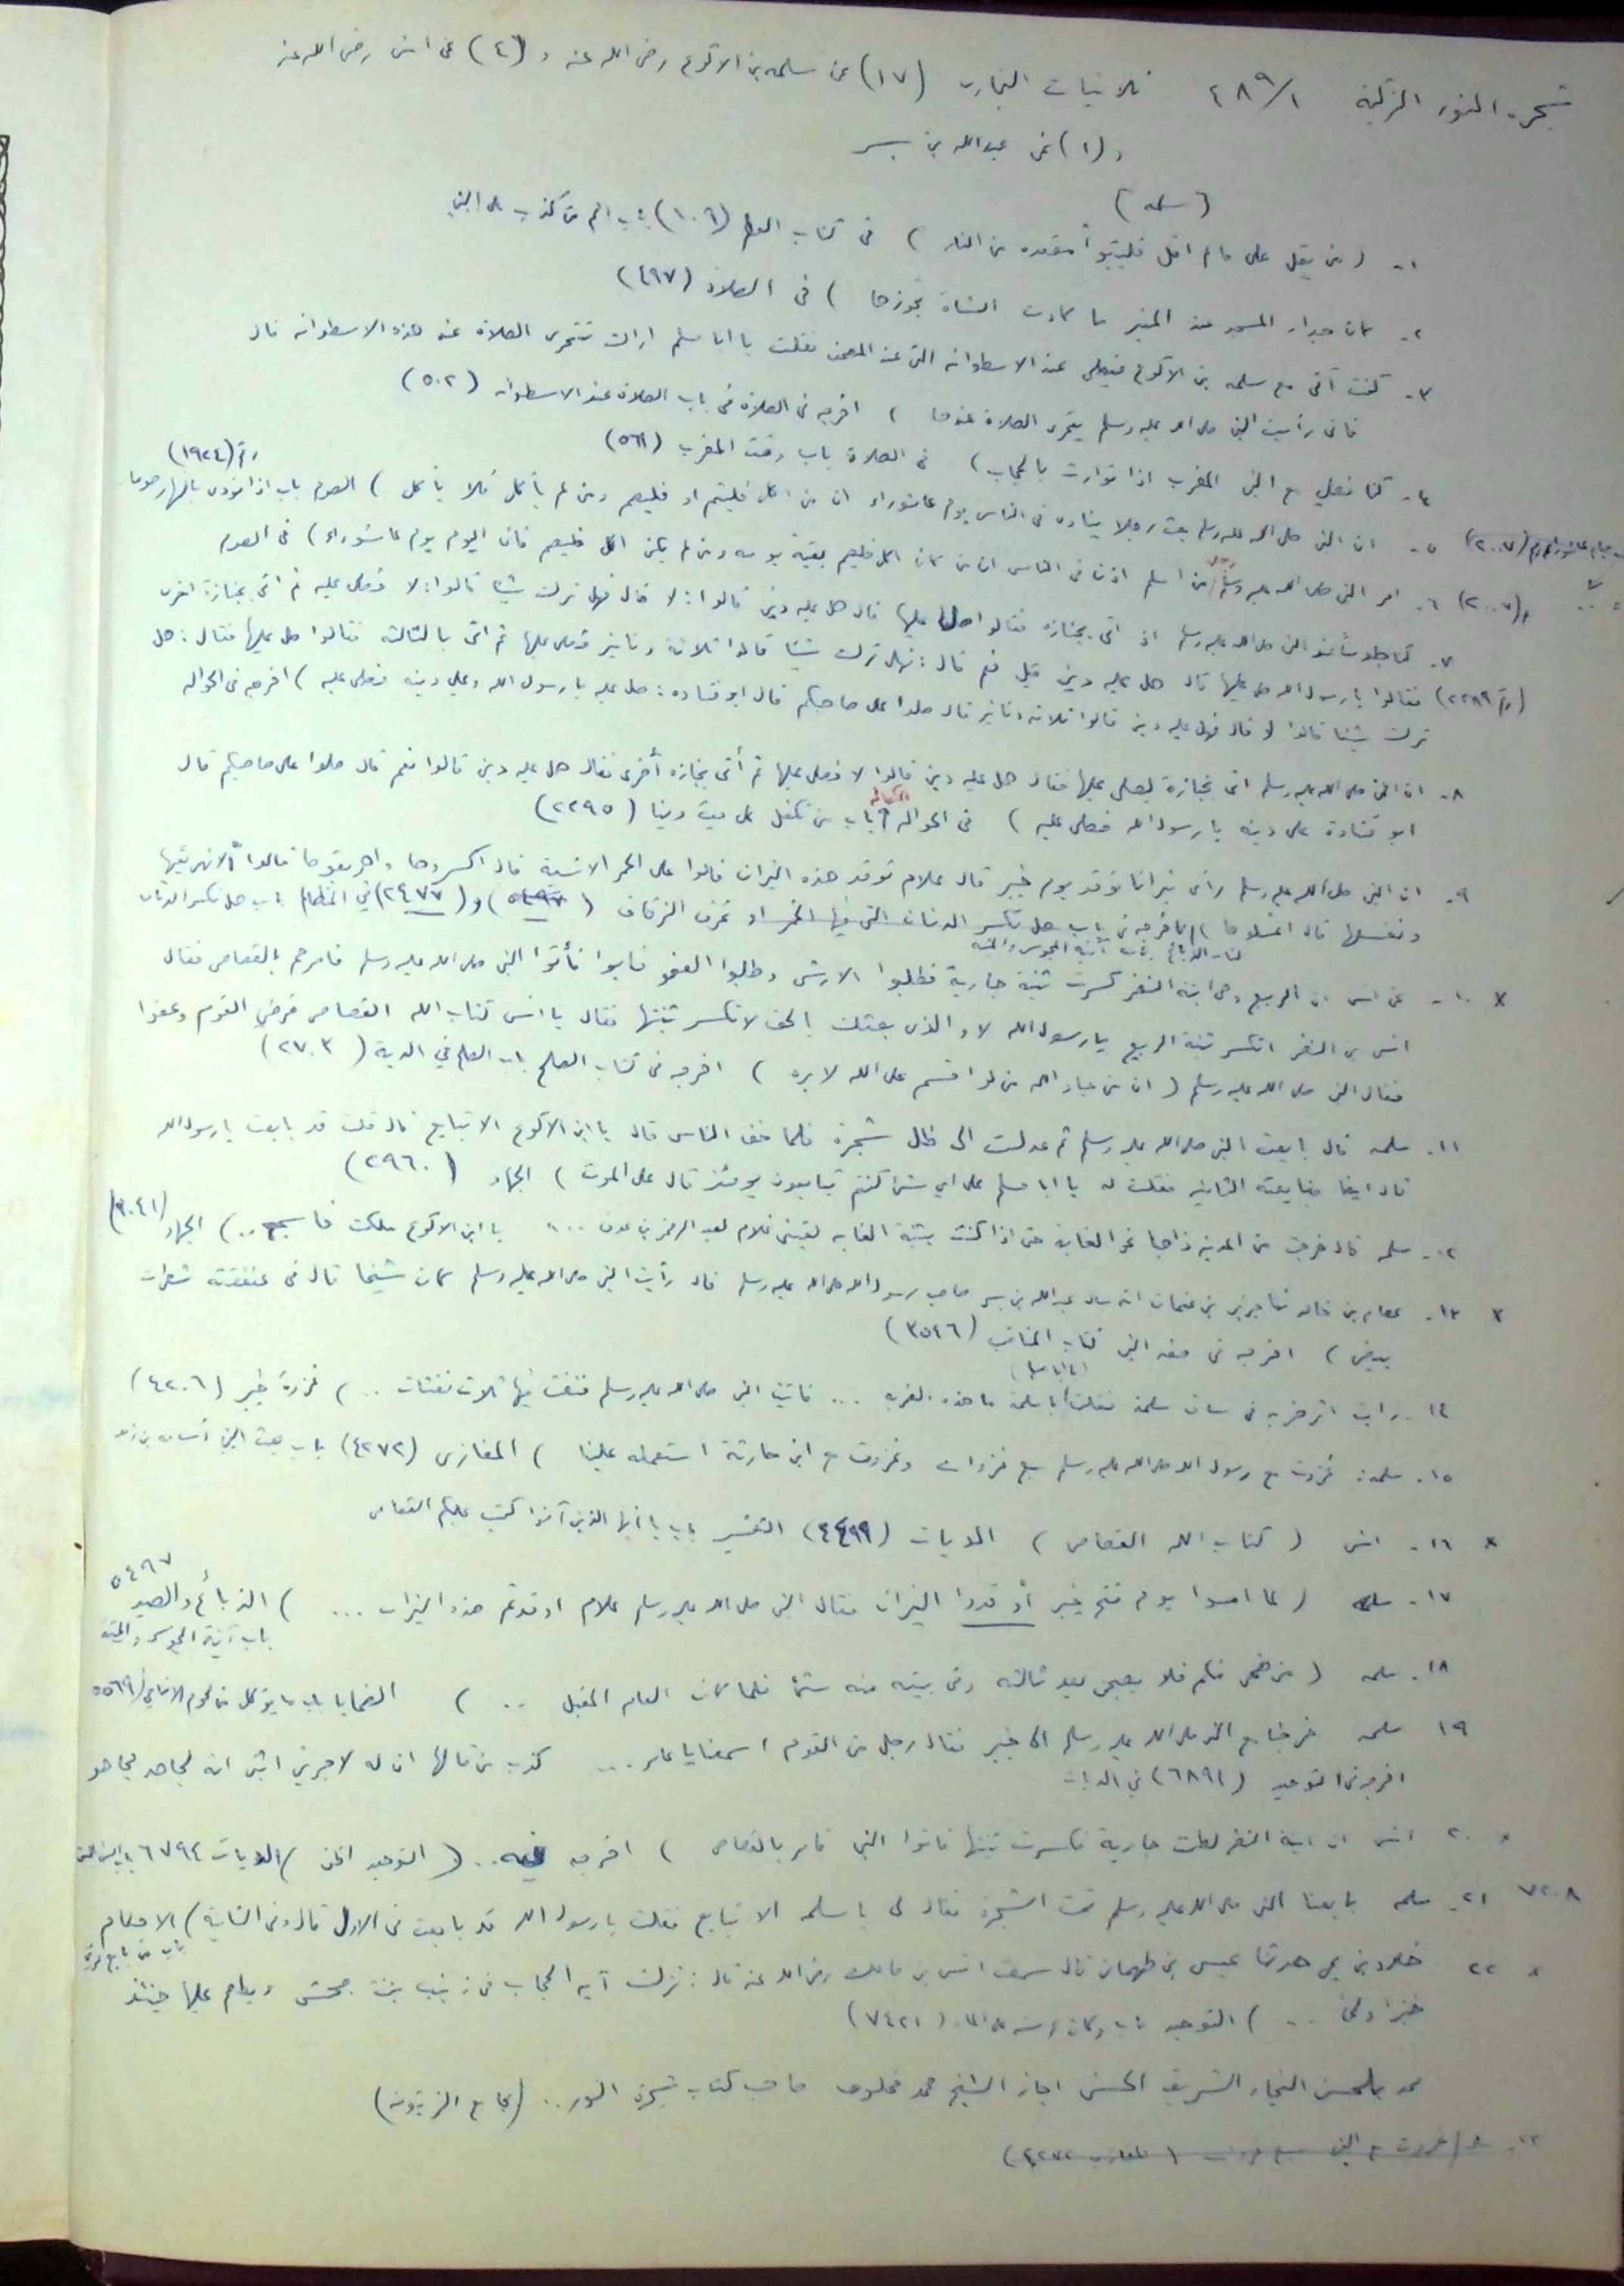 شجرة النور الزكية ٢٨٩/١ ثلاثيات البخاري (١٧) عن سلمه بن الاكوع رضي الله عنه و (٤) عن انس رضي الله عنه
و (١) عن عبدالله بن بسر
(سلمه)
١- (من يقل علي مالم اقل فليتبوأ مقعده من النار) في كتاب العلم (١٠٦) باب اثم من كذب على النبي
٢- كان جدار المسجد عند المنبر ما كادت الشاة تجوزها) في الصلاة (٤٩٧)
٣- كنت آتي مع سلمه بن الاكوع فيصلي عند الاسطوانه التي عند المصحف فقلت يا ابا مسلم اراك تتحرى الصلاة عند هذه الاسطوانه قال
فاني رأيت النبي صلى الله عليه وسلم يتحرى الصلاة عندها) اخرجه في الصلاة في باب الصلاة عند الاسطوانه (٥٠٢)
٤- كنا نصلي مع النبي المغرب اذا توارت بالحجاب) في الصلاة باب وقت المغرب (٥٦١)
رقم (١٩٢٤)
٥- ان النبي صلى الله عليه وسلم بعث رجلا ينادي في الناس يوم عاشوراء ان من اكل فليتم او فليصم ومن لم يأكل فلا يأكل) الصوم باب اذا نودي بالنهار صوما
(٢٠٠٧) ٦- امر النبي صلى الله عليه وسلم رجلا من اسلم اذن في الناس ان من كان اكل فليصم بقية يومه ومن لم يكن اكل فليصم فان اليوم يوم عاشوراء) في الصوم
٧- كنا جلوسا عند النبي صلى الله عليه وسلم اذ اتي بجنازه فقالوا صل عليها قال هل عليه دين قالوا: لا قال فهل ترك شيئا قالوا: لا فصلى عليه ثم اتي بجنازة اخرى
(رقم ٢٢٨٩) فقالوا يا رسول الله صل عليها قال هل عليه دين قيل نعم قال: فهل ترك شيئا قالوا ثلاثة دنانير فصلى عليها ثم اتي بالثالثه فقالوا صل عليها فقال: هل
ترك شيئا قالوا لا قال فهل عليه دين قالوا ثلاثه دنانير قال صلوا على صاحبكم قال ابو قتاده: صل عليه يا رسول الله وعلي دينه فصلى عليه) اخرجه في الحواله
٨- ان النبي صلى الله عليه وسلم اتي بجنازة ليصلي عليها فقال هل عليه دين قالوا لا فصلى عليها ثم أتي بجنازه أخرى فقال هل عليه دين قالوا نعم قال صلوا على صاحبكم قال
ابو قتادة علي دينه يا رسول الله فصلى عليه) في الحواله الكفاله باب من تكفل عن ميت دينا (٢٢٩٥)
٩- ان النبي صلى الله عليه وسلم رأى نيرانا توقد يوم خيبر قال علام توقد هذه النيران قالوا على الحمر الانسية قال اكسروها واهريقوها قالوا ألا نهريقها
ونغسلها قال اغسلوها) اخرجه في باب هل تكسر الدنان التي فيها الخمر او تخرق الزقاق (٥٤٩٧) و (٢٤٧٧) في المظالم باب هل تكسر الدنان
كتاب الذبائح باب آنية المجوس والميته
١٠- عن انس ان الربيع وهي ابنة النضر كسرت ثنية جارية فطلبوا الارش وطلبوا العفو فابوا فأتوا النبي صلى الله عليه وسلم فامرهم بالقصاص فقال
انس بن النضر اتكسر ثنية الربيع يا رسول الله لا والذي بعثك بالحق لا تكسر ثنيتها فقال يا انس كتاب الله القصاص فرضي القوم وعفوا
فقال النبي صلى الله عليه وسلم (ان من عباد الله من لو اقسم على الله لابره) اخرجه في كتاب الصلح باب الصلح في الدية (٢٧٠٣)
١١- سلمه قال بايعت النبي صلى الله عليه وسلم ثم عدلت الى ظل شجرة فلما خف الناس قال يا ابن الاكوع الا تبايع قال قلت قد بايعت يا رسول الله
قال ايضا فبايعته الثانيه فقلت له يا ابا مسلم على اي شئ كنتم تبايعون يومئذ قال على الموت) الجهاد (٢٩٦٠)
١٢- سلمه قال خرجت من المدينه ذاهبا نحو الغابه حتى اذا كنت بثنية الغابه لقيني غلام لعبد الرحمن بن عوف .... يا ابن الاكوع ملكت فاسجح ..) الجهاد (٣٠٤١)
١٣- عصام بن خالد ثنا حريز بن عثمان انه سأل عبد الله بن بسر صاحب رسول الله صلى الله عليه وسلم قال رأيت النبي صلى الله عليه وسلم كان شيخا قال في عنفقته شعرات
بيض) اخرجه في صفه النبي كتاب المناقب (٣٥٤٦)
١٤- رايت اثر ضربه في ساق سلمة فقلت يا ابا سلمة ما هذه الضربه ... فاتيت النبي صلى الله عليه وسلم فنفث فيها ثلاث نفثات ..) غزوة خيبر (٤٢٠٦)
١٥- سلمه: غزوت مع رسول الله صلى الله عليه وسلم سبع غزوات وغزوت مع ابن حارثة استعمله علينا) المغازي (٤٢٧٢) باب بعث النبي أسامه بن زيد
١٦- انس (كتاب الله القصاص) الديات (٤٤٩٩) التفسير باب يا أيها الذين آمنوا كتب عليكم القصاص
١٧- سلمه (لما امسوا يوم فتح خيبر أوقدوا النيران فقال النبي صلى الله عليه وسلم علام اوقدتم هذه النيران ...) الذبائح والصيد ٥٤٩٧
باب آنية المجوس والميته
١٨- سلمه (من ضحى منكم فلا يصبحن بعد ثالثه وفي بيته منه شئ فلما كان العام المقبل ..) الضحايا باب ما يؤكل من لحوم الاضاحي (٥٥٦٩)
١٩ سلمه خرجنا مع النبي صلى الله عليه وسلم الى خيبر فقال رجل من القوم اسمعنا يا عامر ... كذب من قالها ان له لاجرين اثنين انه لجاهد مجاهد
اخرجه في التوحيد (٦٨٩١) في الديات
٢٠- انس ان ابنة النضر لطمت جارية فكسرت ثنيتها فاتوا النبي فامر بالقصاص) اخرجه .. (التوحيد) الديات ٦٧٩٤ باب السن بالسن
٧٢٠٨ ٢١- سلمه بايعنا النبي صلى الله عليه وسلم تحت الشجرة فقال لي يا سلمه الا تبايع فقلت يا رسول الله قد بايعت في الاول قال وفي الثانية) الاحكام
باب من بايع مرتين
٢٢ خلاد بن يحيى حدثنا عيسى بن طهمان قال سمعت انس بن مالك رضي الله عنه قال: نزلت آيه الحجاب في زينب بنت جحش واطعم عليها يومئذ
خبزا ولحما ..) التوحيد باب وكان عرشه على الماء (٧٤٢١)
محمد بلحسن النجار الشريف الحسني اجاز الشيخ محمد مخلوف صاحب كتاب شجرة النور .. (بجامع الزيتونه)
غزوت مع النبي سبع غزوات (المغازي ٤٢٧٢)